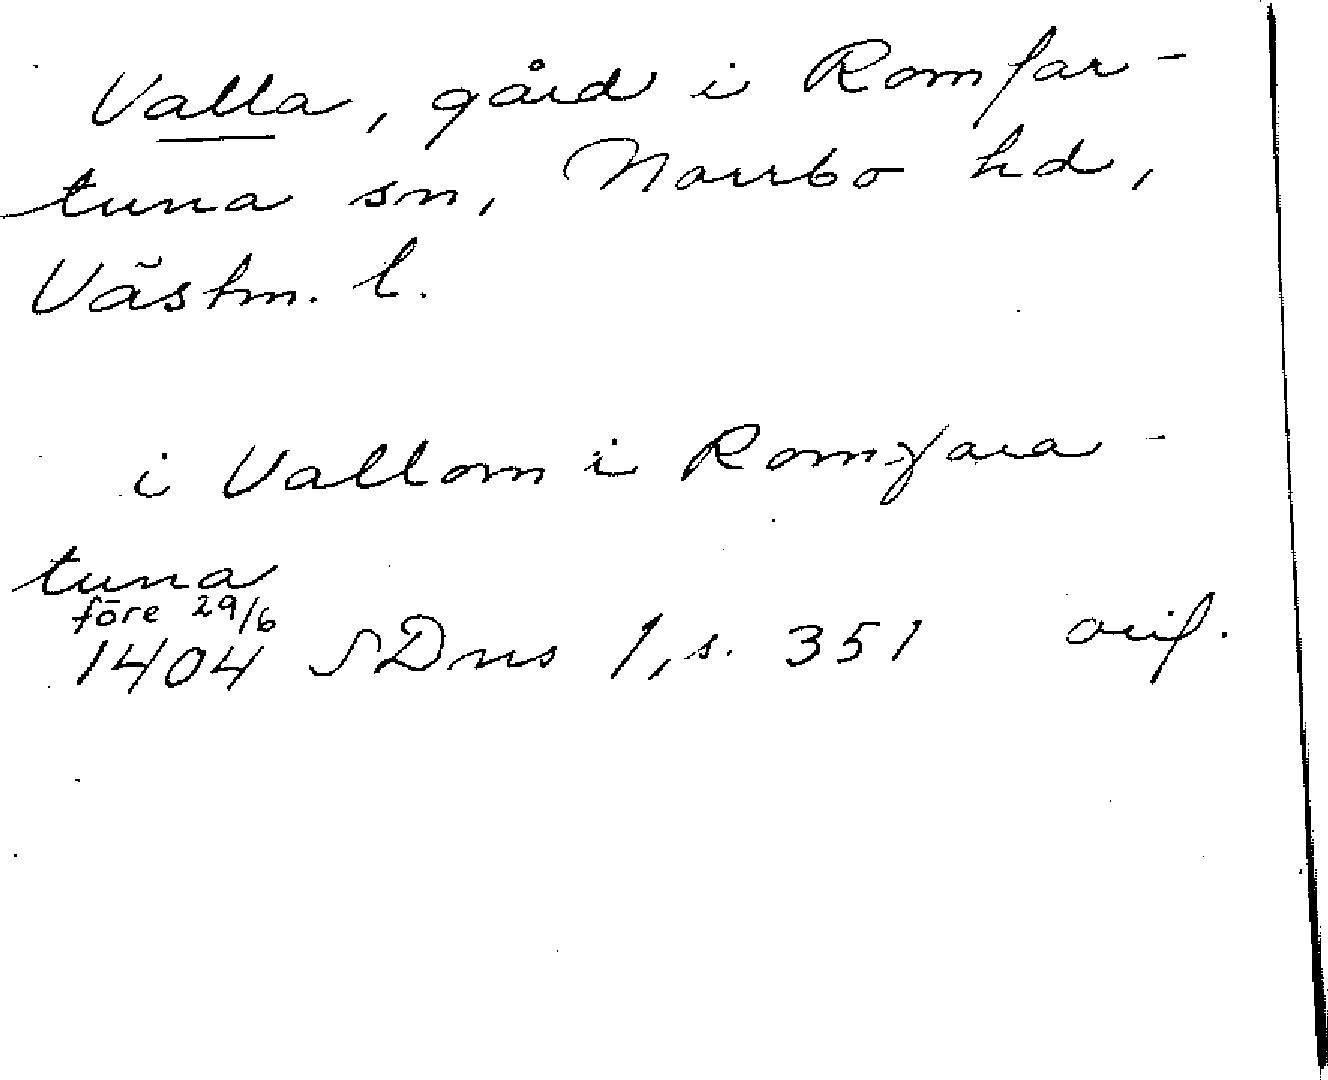 Valla, gård i Romfar-
tuna sn, Norrbo hd,
Västm. l.
i Vallom i Romfara-
tuna
före 29/6
1404 SDns 1, s. 351 orig.